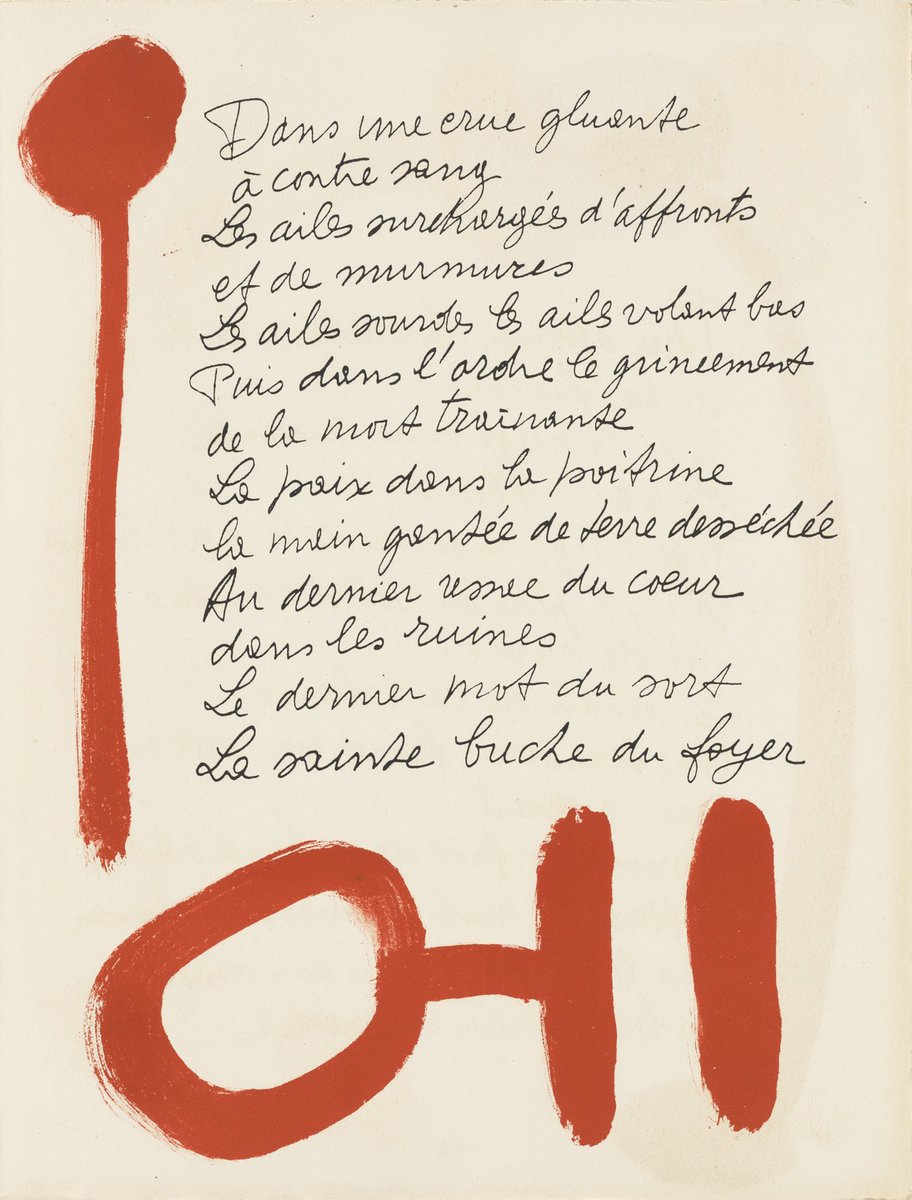 Dans une crue gluante
à contre sang
Les ailes surchargées d'affronts
et de murmures
Les ailes sourdes les ailes volant bas
Puis dans l'ordre le grincement
de la mort traînante
La paix dans la poitrine
la main gantée de terre desséchée
Au dernier ressac du coeur
dans les ruines
Le dernier mot du sort
La sainte buche du foyer